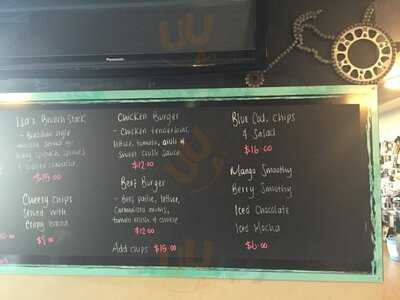 Panasonic
Lisa's Brunch Stack
- Brazilian style
$15.00
Cheesy Chips
Served with
Crispy bacon
Chicken Burger
- Chicken tenderloins,
lettuce, tomato, aioli &
Sweet chilli sauce
$12.00
Beef Burger
- Beef pattie, lettuce,
Caramalised onions,
tomato relish & cheese
$12.00
Add chips $15.00
Blue Cod, chips
& Salad
$16.00
Mango Smoothy
Berry Smoothy
Iced Chocolate
Iced Mocha
$6.00